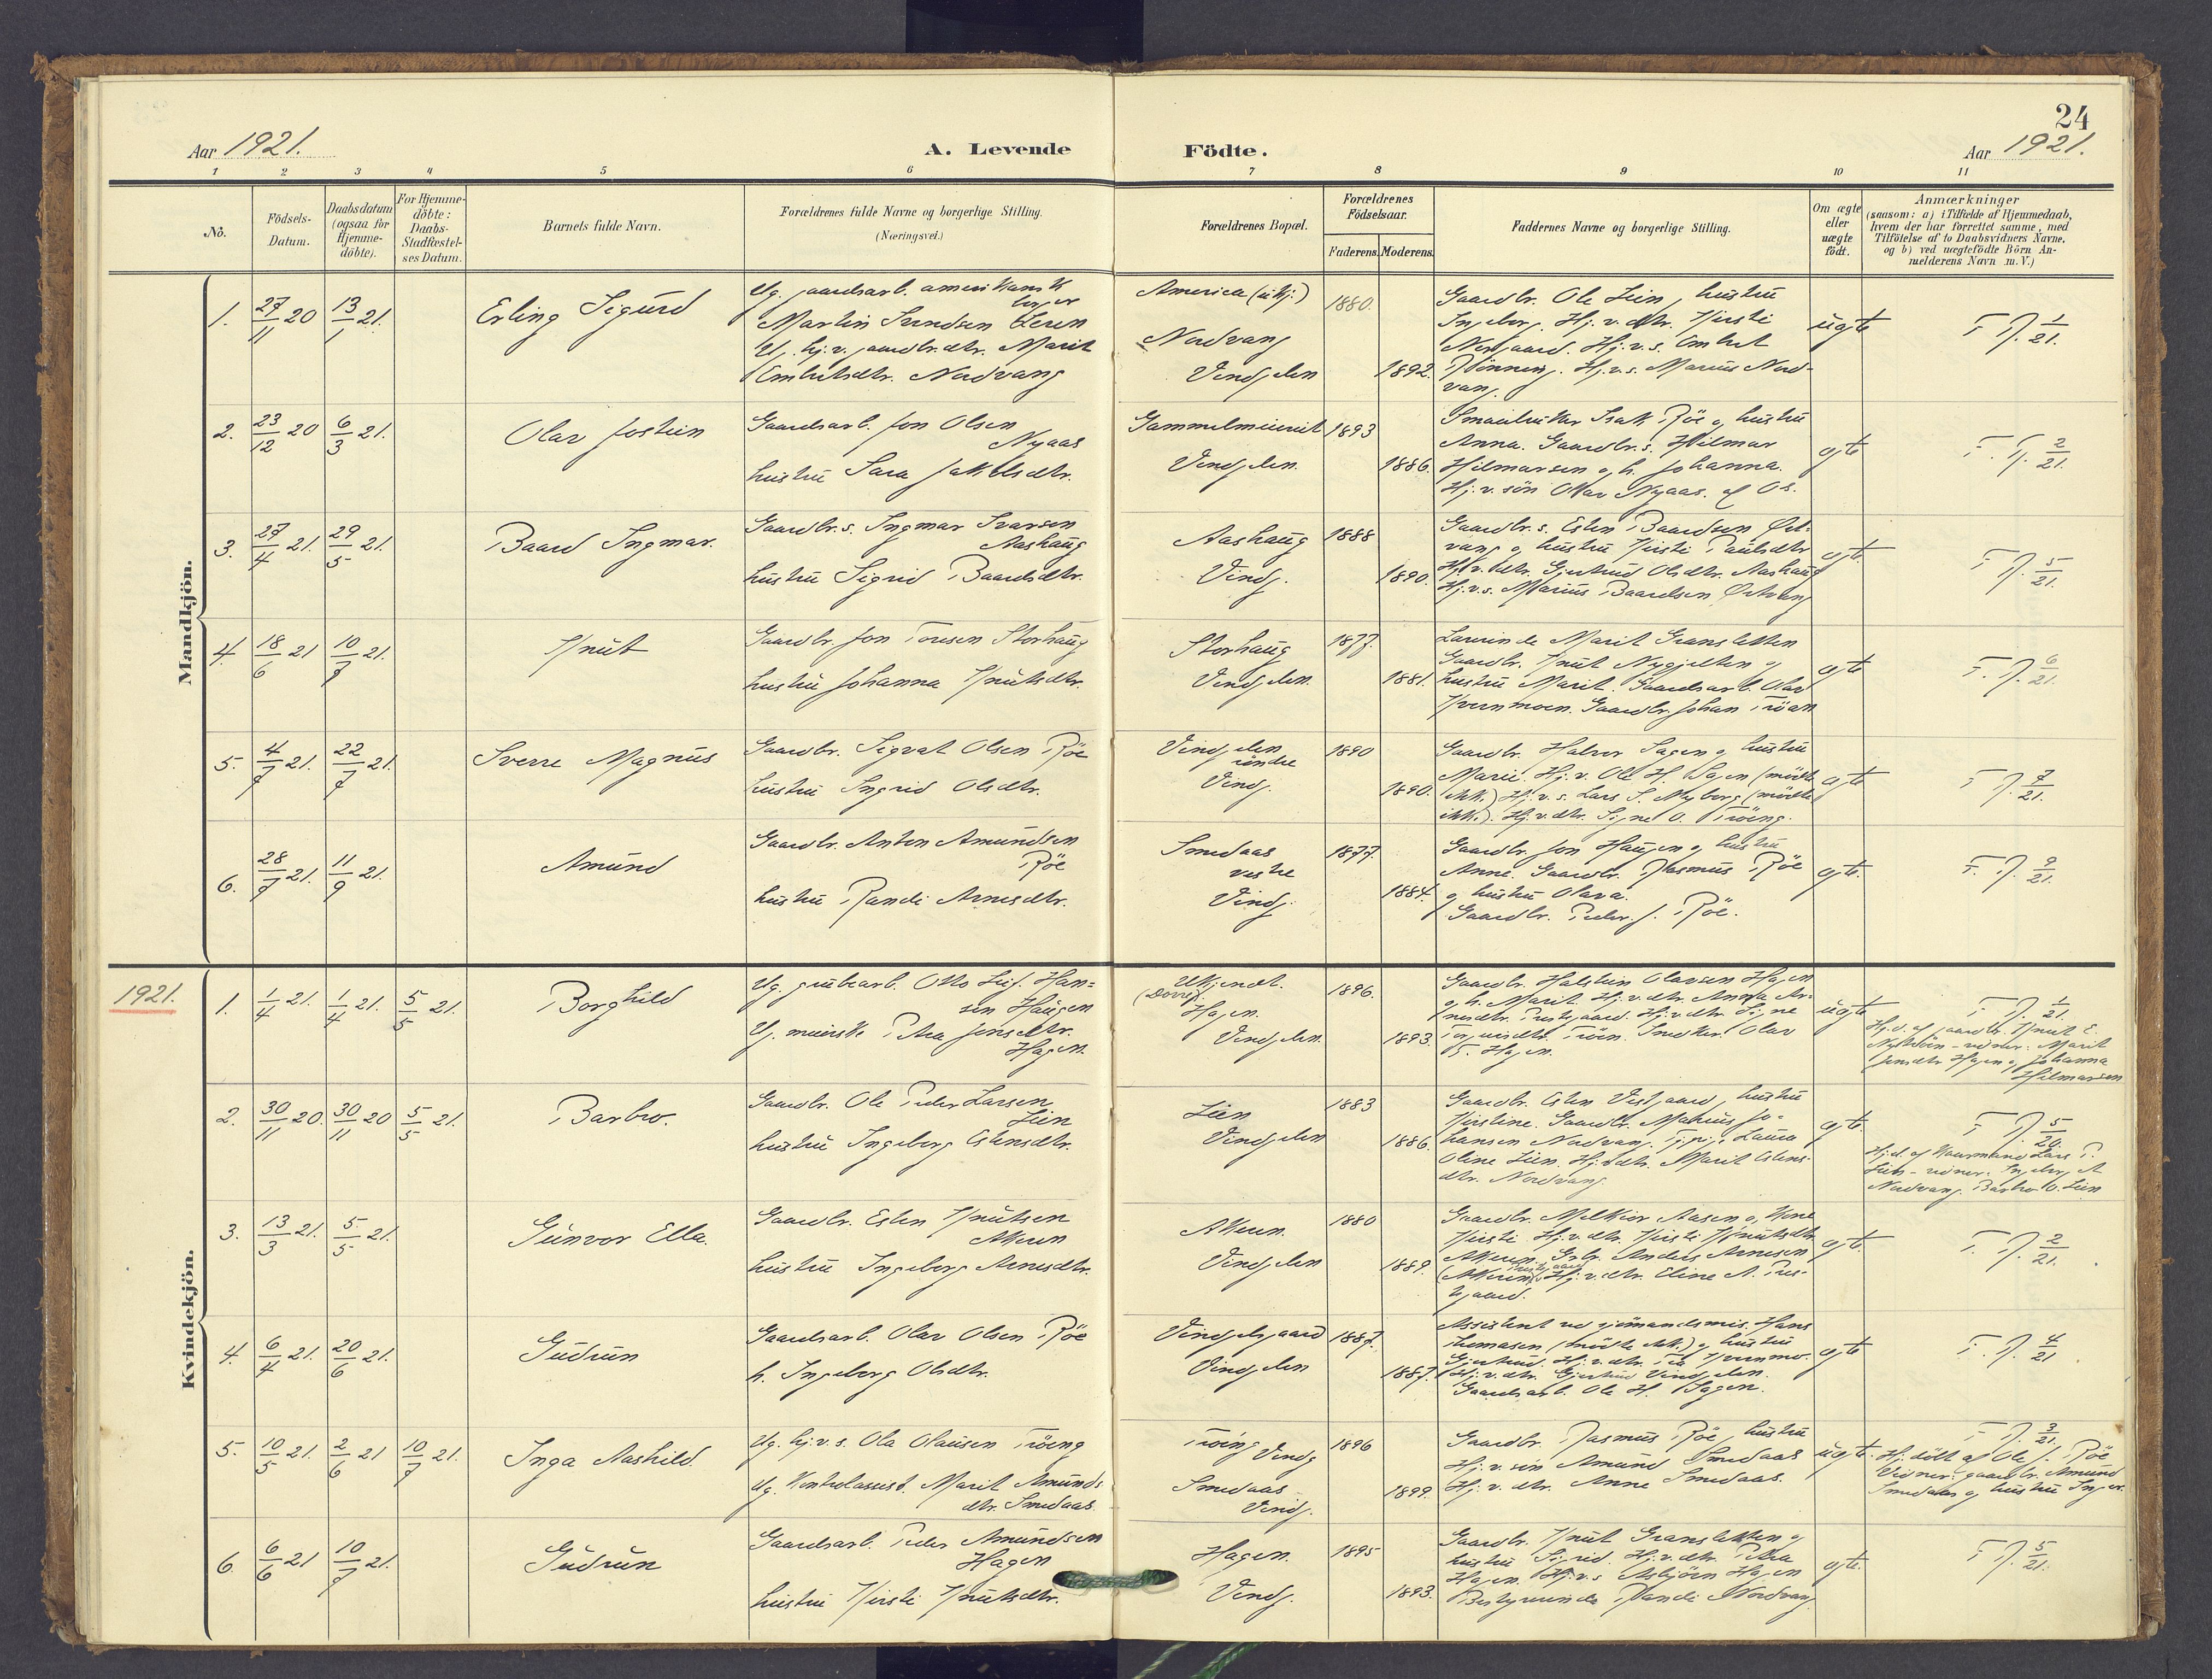 24
Aar 1921.
A. Levende Födte.
Aar 1921.
1 2 3 4 5 6 7 8 9 10 11
No.
Födsels-
Datum.
Daabsdatum
(ogsaa for
Hjemme-
döbte).
For Hjemme-
döbte:
Daabs-
Stadfæstel-
ses Datum.
Barnets fulde Navn.
Forældrenes fulde Navne og borgerlige Stilling.
(Næringsvei.)
Forældrenes Bopæl.
Forældrenes
Födselsaar.
Faderens. Moderens.
Faddernes Navne og borgerlige Stilling.
Om ægte
eller
uægte
födt.
Anmærkninger
(saasom: a) i Tilfælde af Hjemmedaab,
hvem der har forrettet samme, med
Tilföielse af to Daabsvidners Navne.
og b) ved uægtefödte Börn An-
melderens Navn m.V.)
Mandkjön.
1. 27/11 20 13/1 21.
Erling Sigurd
Ug. gaardsarb. amerikansk
borger
Martin Svendsen
Ug. hj.v. gaardbr.dtr. Marit
Embretsdtr. Nordvang
America (ukj.)
Nordvang
Vingelen
1880.
1892.
Gaardbr. Ole Lien, hustru
Ingeborg. Hj.v. dtr. Kirsti
Norgaard. Hj.v.s. Embret
Rönning. Hj.v.s. Marius Nord-
vang.
uegte
F. R. 1/21.
2. 23/12 20 6/3 21.
Olav Jostein
Gaardsarb. Jon Olsen
Nyaas
hustru Sara Jakobsdtr.
Gammelmeieriet
Vingelen.
1893
1886.
Smaabruker Isak Röe og hustru
Anna. Gaardbr.s. Hilmar
Hilmarsen og h. Johanna.
Hj.v. sön Olav Nyaas. af Os.
egte
F. R. 2/21.
3. 27/4 21. 29/5 21.
Baard Ingmar.
Gaardbr.s. Ingmar Ivarsen
Aashaug
hustru Sigrid Baardsdtr.
Aashaug
Ving.
1888
1890.
Gaardbr.s. Esten Baardsen Öst-
vang og hustru Kirsti Paulsdtr
Hj.v. dtr. Gjertrud Olsdtr. Aashaug
Hj.v.s. Marius Baardsen Östvang
egte
F. R. 5/21.
4. 18/6 21 10/7 21.
Knut
Gaardbr. Jon Tonsen Storhaug
hustru Johanna Knutsdtr.
Storhaug
Vingelen.
1877.
1881.
Lærerinde Marit Gransletten
Gaardbr. Knut Nygjelten og
hustru Marit. Gaardsarb. Olav
Kvernmoen. Gaardbr. Johan Tröan
egte
F. R. 6/21.
5. 4/7 21. 22/7 21.
Sverre Magnus
Gaardbr. Sigvat Olsen Röe
hustru Ingrid Olsdtr.
Vingelen
söndre
Ving.
1890
1890.
Gaardbr. Halvor Sagen og hustru
Marie. Hj.v. Ole H. Sagen (mödte
ikke.) Hj.v.s. Lars S. Myberg (mödte
ikke). Hj.v.dtr. Signe O. Tröeng.
egte
F. R. 7/21.
6. 28/7 21. 11/9 21.
Amund
Gaardbr. Anton Amundsen
Röe
hustru Randi Arnesdtr.
Smedaas
vestre
Ving.
1877.
1884.
Gaardbr. Jon Haugen og hustru
Anne. Gaardbr. Rasmus Röe
og hustru Olava.
Gaardbr. Peder J. Röe.
egte.
F. R. 9/21.
1921.
Kvindekjön.
1. 1/4 21. 1/4 21. 5/5 21.
Borghild
Ug. grubearb. Otto Leif Han-
sen Haugen
Ug. meierske Petra Jensdtr.
Hagen.
Ukjendt.
(Dovre)
Hagen.
Vingelen.
1896.
1893.
Gaardbr. Halstein Olavsen Hagen
og h. Marit. Hj.v.dtr. Anna Ar-
nesdtr. Prestgaard. Hj.v.dtr Signe
Tröen. Snedker Olav
Hagen.
uegte
F. R. 1/21.
Hj.d. af gaardbr. Knut E.
- vidner: Marit
Jensdtr Hagen og Johanna
Hilmarsen
2. 30/11 20. 30/11 20 5/5 21.
Barbro.
Gaardbr. Ole Peder Larsen
Lien
hustru Ingeborg Estensdtr.
Lien
Vingelen
1883
1886.
Gaardbr. Esten Vestgaard, hustru
Kirstine. Gaardbr. Marius Jo-
hansen Nordvang. Laura
Oline Lien. Hj.v.dtr. Marit Estens-
dtr. Nordvang.
egte.
F. R. 5/20.
Hj.d. af Lars P.
Lien - vidner. Ingeborg A
Nordvang. Barbro O. Lien
3. 13/3 21. 5/5 21.
Gunvor Ella.
Gaardbr. Esten Knutsen
Akeren
hustru Ingeborg Arnesdtr.
Akeren.
Vingelen
1880
1889.
Gaardbr. Melkior Aasen og kone
Kirsti. Hj.v.dtr. Kirsti Knutsdtr.
Akeren. Grbr. Anders Arnesen
(Akeren) Prestgaard Hj.v.dtr. Eline A. Pres-
gaard.
egte.
F. R. 2/21.
4. 6/4 21. 20/6 21.
Gudrun
Gaardsarb. Olav Olsen Röe
h. Ingeborg Olsdtr.
Vingelsgaard
Vingelen
1887.
1887.
Assistent ved sjömandsmis. Hans
Thomasen (mödte ikke) og hustru
Gjertrud. Hj.v.dtr. Kvernmo.
Hj.v.dtr. Gjertrud Vingelen.
Gaardsarb. Ole H. Sagen.
egte
F. R. 4/21.
5. 10/5 21. 2/6 21 10/7 21.
Inga Aashild.
Ug. hj.v.s. Ola Olausen Tröeng
Ug. Kontrolassist. Marit Amunds-
dtr. Smedaas.
Tröeng Ving.
Smedaas
Ving.
1896
1899.
Gaardbr. Rasmus Röe, hustru
Hj.v. sön Amund Smedaas
Hj.v. dtr. Anne Smedaas.
uegte.
F. R. 3/21.
Hj. döbt af Ole J. Röe
Vidner: gaardbr. Amund
Smedaas og hustru Inger.
6. 6/6 21 10/7 21.
Gudrun
Gaardsarb. Peder Amundsen
Hagen
hustru Kirsti Knutsdtr.
Hagen.
Ving.
1895
1893.
Gaardbr. Knut Gransletten og
hustru Sigrid. Hj.v.dtr. Petra
Hagen. Hj.v.s Asbjörn Hagen
Bestyrerinde Randi Nordvang.
egte.
F. R. 5/21.